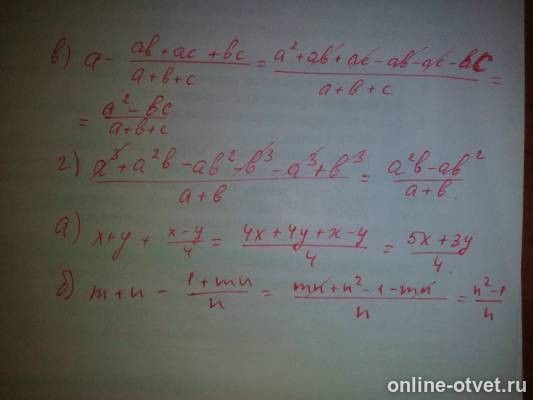 в) a - (ab + ac + bc)/(a + b + c) = (a² + ab + ac - ab - ac - bc)/(a + b + c) =
= (a² - bc)/(a + b + c)
г) (a³ + a²b - ab² - b³ - a³ + b³)/(a + b) = (a²b - ab²)/(a + b)
а) x + y + (x - y)/4 = (4x + 4y + x - y)/4 = (5x + 3y)/4
б) m + n - (1 + mn)/n = (mn + n² - 1 - mn)/n = (n² - 1)/n
online-otvet.ru